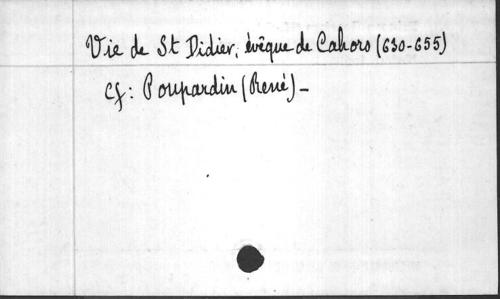 Vie de St Didier, évêque de Cahors (630-655)
Cf: Poupardin (René) -